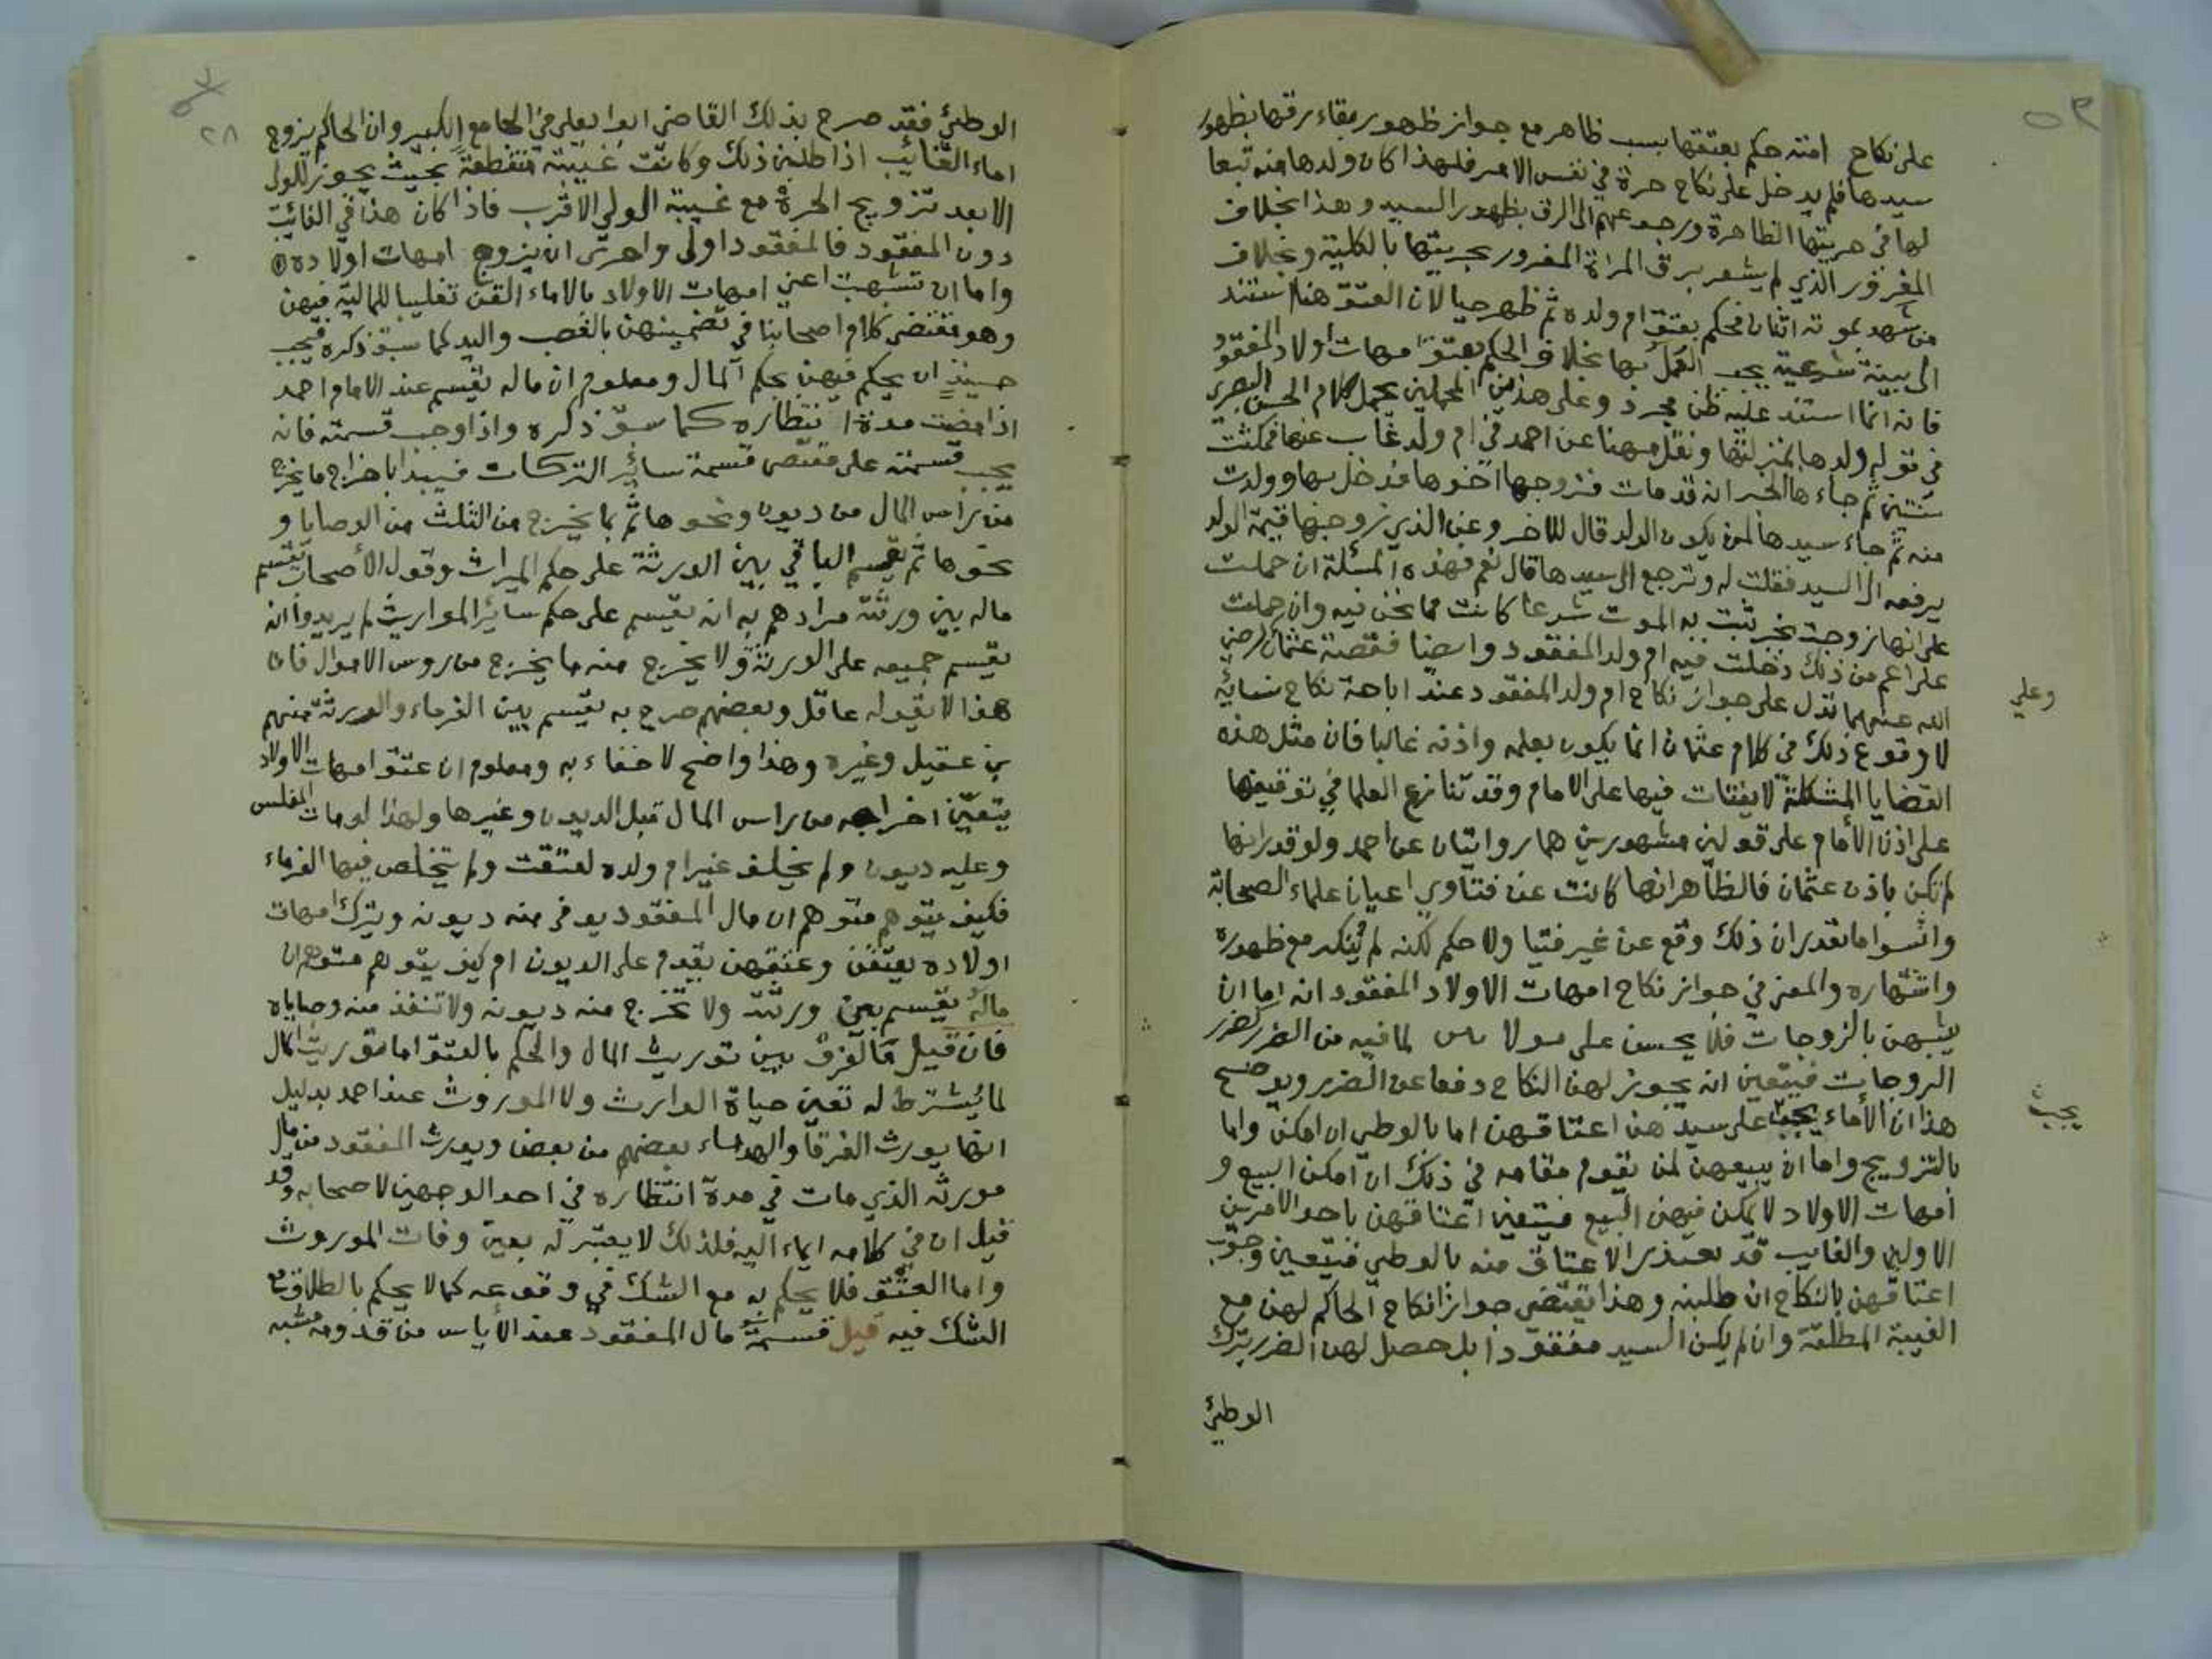 على نكاح امته حكم بعتقها بسبب ظاهر مع جواز ظهور بقاء رقها بظهور
سيدها فلم يدخل على نكاح حرة في نفس الامر فلهذا كان ولدها منه تبعا
لها في حريتها الظاهرة ورجوعهم الى الرق بظهور السيد وهذا بخلاف
المغرور الذي لم يشعر برق المراة المغرور بحريتها بالكلية وبخلاف
من شهد بموته اثنان فحكم بعتق ام ولده ثم ظهر حيا لان العتق هنا استند
الى بينة شرعية يجب العمل بها بخلاف الحكم بعتق امهات اولاد المفقود
فانه انما استند عليه ظن مجرد وعلى هذين المحملين يحمل كلام الحسن البصري
في قوله ولدها بمنزلتها ونقل مهنا عن احمد في ام ولد غاب عنها فمكثت
سنتين ثم جاءها الخبر انه قد مات فتزوجها اخوها فدخل بها وولدت
منه ثم جاء سيدها لمن يكون الولد قال للاخر وعن الذي تزوجها قيمة الولد
يرفعه الى السيد فقلت له وترجع الى سيدها قال نعم فهذه المسئلة ان حملت
على انها تزوجت بخبر ثبت به الموت شرعا كانت مما نحن فيه وان حملت
على اعم من ذلك دخلت فيه ام ولد المفقود وايضا فقصة عثمان رضي
الله عنه انما تدل على جواز نكاح ام ولد المفقود عند اباحة نكاح نسائه
وعلي
لا وقوع ذلك في كلام عثمان انما يكون بعلمه واذنه غالبا فان مثل هذه
القضايا المشكلة لا يفتات فيها على الامام وقد تنازع العلما في توقيفها
على اذن الامام على قولين مشهورين هما روايتان عن احمد ولو قدر انها
لم تكن باذن عثمان فالظاهر انها كانت عن فتاوي اعيان علماء الصحابة
واسوا ما يقدر ان ذلك وقع عن غير فتيا ولا حكم لكنه لم ينكر مع ظهوره
واشتهاره والمعنى في جواز نكاح امهات الاولاد المفقود انه اما ان
يشبهن بالزوجات فلا يحسن على لما فيه من الضرر كضرر
الزوجات فيتعين انه يجوز لهن النكاح دفعا عن الضرر ويوضح
هذا ان الأماء يجب على سيدهن اعتاقهن اما بالوطي ان امكن واما
يجب
بالتزويج واما ان يبيعهن لمن يقوم مقامه في ذلك ان امكن البيع و
امهات الاولاد لا يمكن فيهن البيع فيتعين اعتاقهن باحد الامرين
الاولين والغايب قد تعذر الاعتاق منه بالوطي فيتعين وجوب
اعتاقهن بالنكاح ان طلبنه وهذا يقتضي جواز انكاح الحاكم لهن مع
الغيبة المطلقة وان لم يكن السيد مفقودا بل حصل لهن الضرر بترك
الوطئ
٢٨
الوطئ فقد صرح بذلك القاضي ابو يعلي في الجامع الكبير وان الحاكم يزوج
اماء الغائب اذا طلبن ذلك وكانت غيبته منقطعة بحيث يجوز للولي
الابعد تزويج الحرة مع غيبة الولي الاقرب فاذا كان هذا في الغائب
دون المفقود فالمفقود اولى واحرى ان يزوج امهات اولاده
واما ان تشبهت اعني امهات الاولاد بالاماء القن تغليبا للمالية فيهن
وهو مقتضى كلام اصحابنا في تضمينهن بالغصب واليد كما سبق ذكره فيجب
حينئذ ان يحكم فيهن بحكم المال ومعلوم ان ماله يقسم عند الامام احمد
اذا مضت مدة انتظاره كما سبق ذكره واذا وجب قسمته فانه
يجب قسمته على مقتضى قسمة سائر التركات فيبدا باخراج ما يخرج
من راس المال من ديون ونحوها ثم بما يخرج من الثلث من الوصايا و
نحوها ثم يقسم الباقي بين الورثة على حكم الميراث وقول الأصحاب يقسم
ماله بين ورثته مرادهم به ان يقسم على حكم سائر المواريث لم يريدوا انه
يقسم جميعه على الورثة ولا يخرج منه ما يخرج من روس الاموال فان
هذا لا يقوله عاقل وبعضهم صرح به يقسم بين الغرماء والورثة منهم
بن عقيل وغيره وهذا واضح لا خفاء به ومعلوم ان عتق امهات الاولاد
يتعين اخراجه من راس المال قبل الديون وغيرها ولهذا لو مات المفلس
وعليه ديون ولم يخلف غير ام ولده لعتقت ولم يتخلص فيها الغرماء
فكيف يتوهم متوهم ان مال المفقود يوفى منه ديونه ويترك امهات
اولاده يعتقن وعتقهن يقوم على الديون ام كيف يتوهم متوهم ان
ماله يقسم بين ورثته ولا تخرج منه ديونه ولا تنفذ منه وصاياه
فان قيل فالفرق بين توريث المال والحكم بالعتق اما توريث المال
لما يشترط له تعين حياة الوارث ولا الموروث عند احمد بدليل
انها يورث الفرقا والهدماء بعضهم من بعض ويورث المفقود من مال
مورثه الذي مات في مدة انتظاره في احد الوجهين لاصحابه وقد
قيل ان في كلامه ايماء اليه فلذلك لا يعتبر له يعين وفات الموروث
واما العتق فلا يحكم به مع الشك في وقوعه كما لا يحكم بالطلاق مع
الشك فيه قيل قسمة مال المفقود عند الأياس من قدومه مشبه